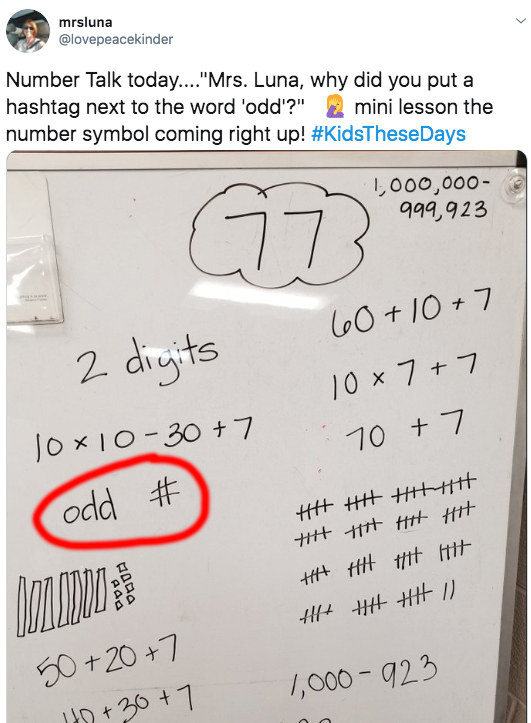 mrsluna
@lovepeacekinder
Number Talk today...."Mrs. Luna, why did you put a
hashtag next to the word 'odd'?" 🤦‍♀️ mini lesson the
number symbol coming right up! #KidsTheseDays
1,000,000-
999,923
77
2 digits
60+10+7
10 x 7 + 7
10 x 10 - 30 + 7
70 + 7
odd #
50+20+7
40+30+7
1,000 - 923